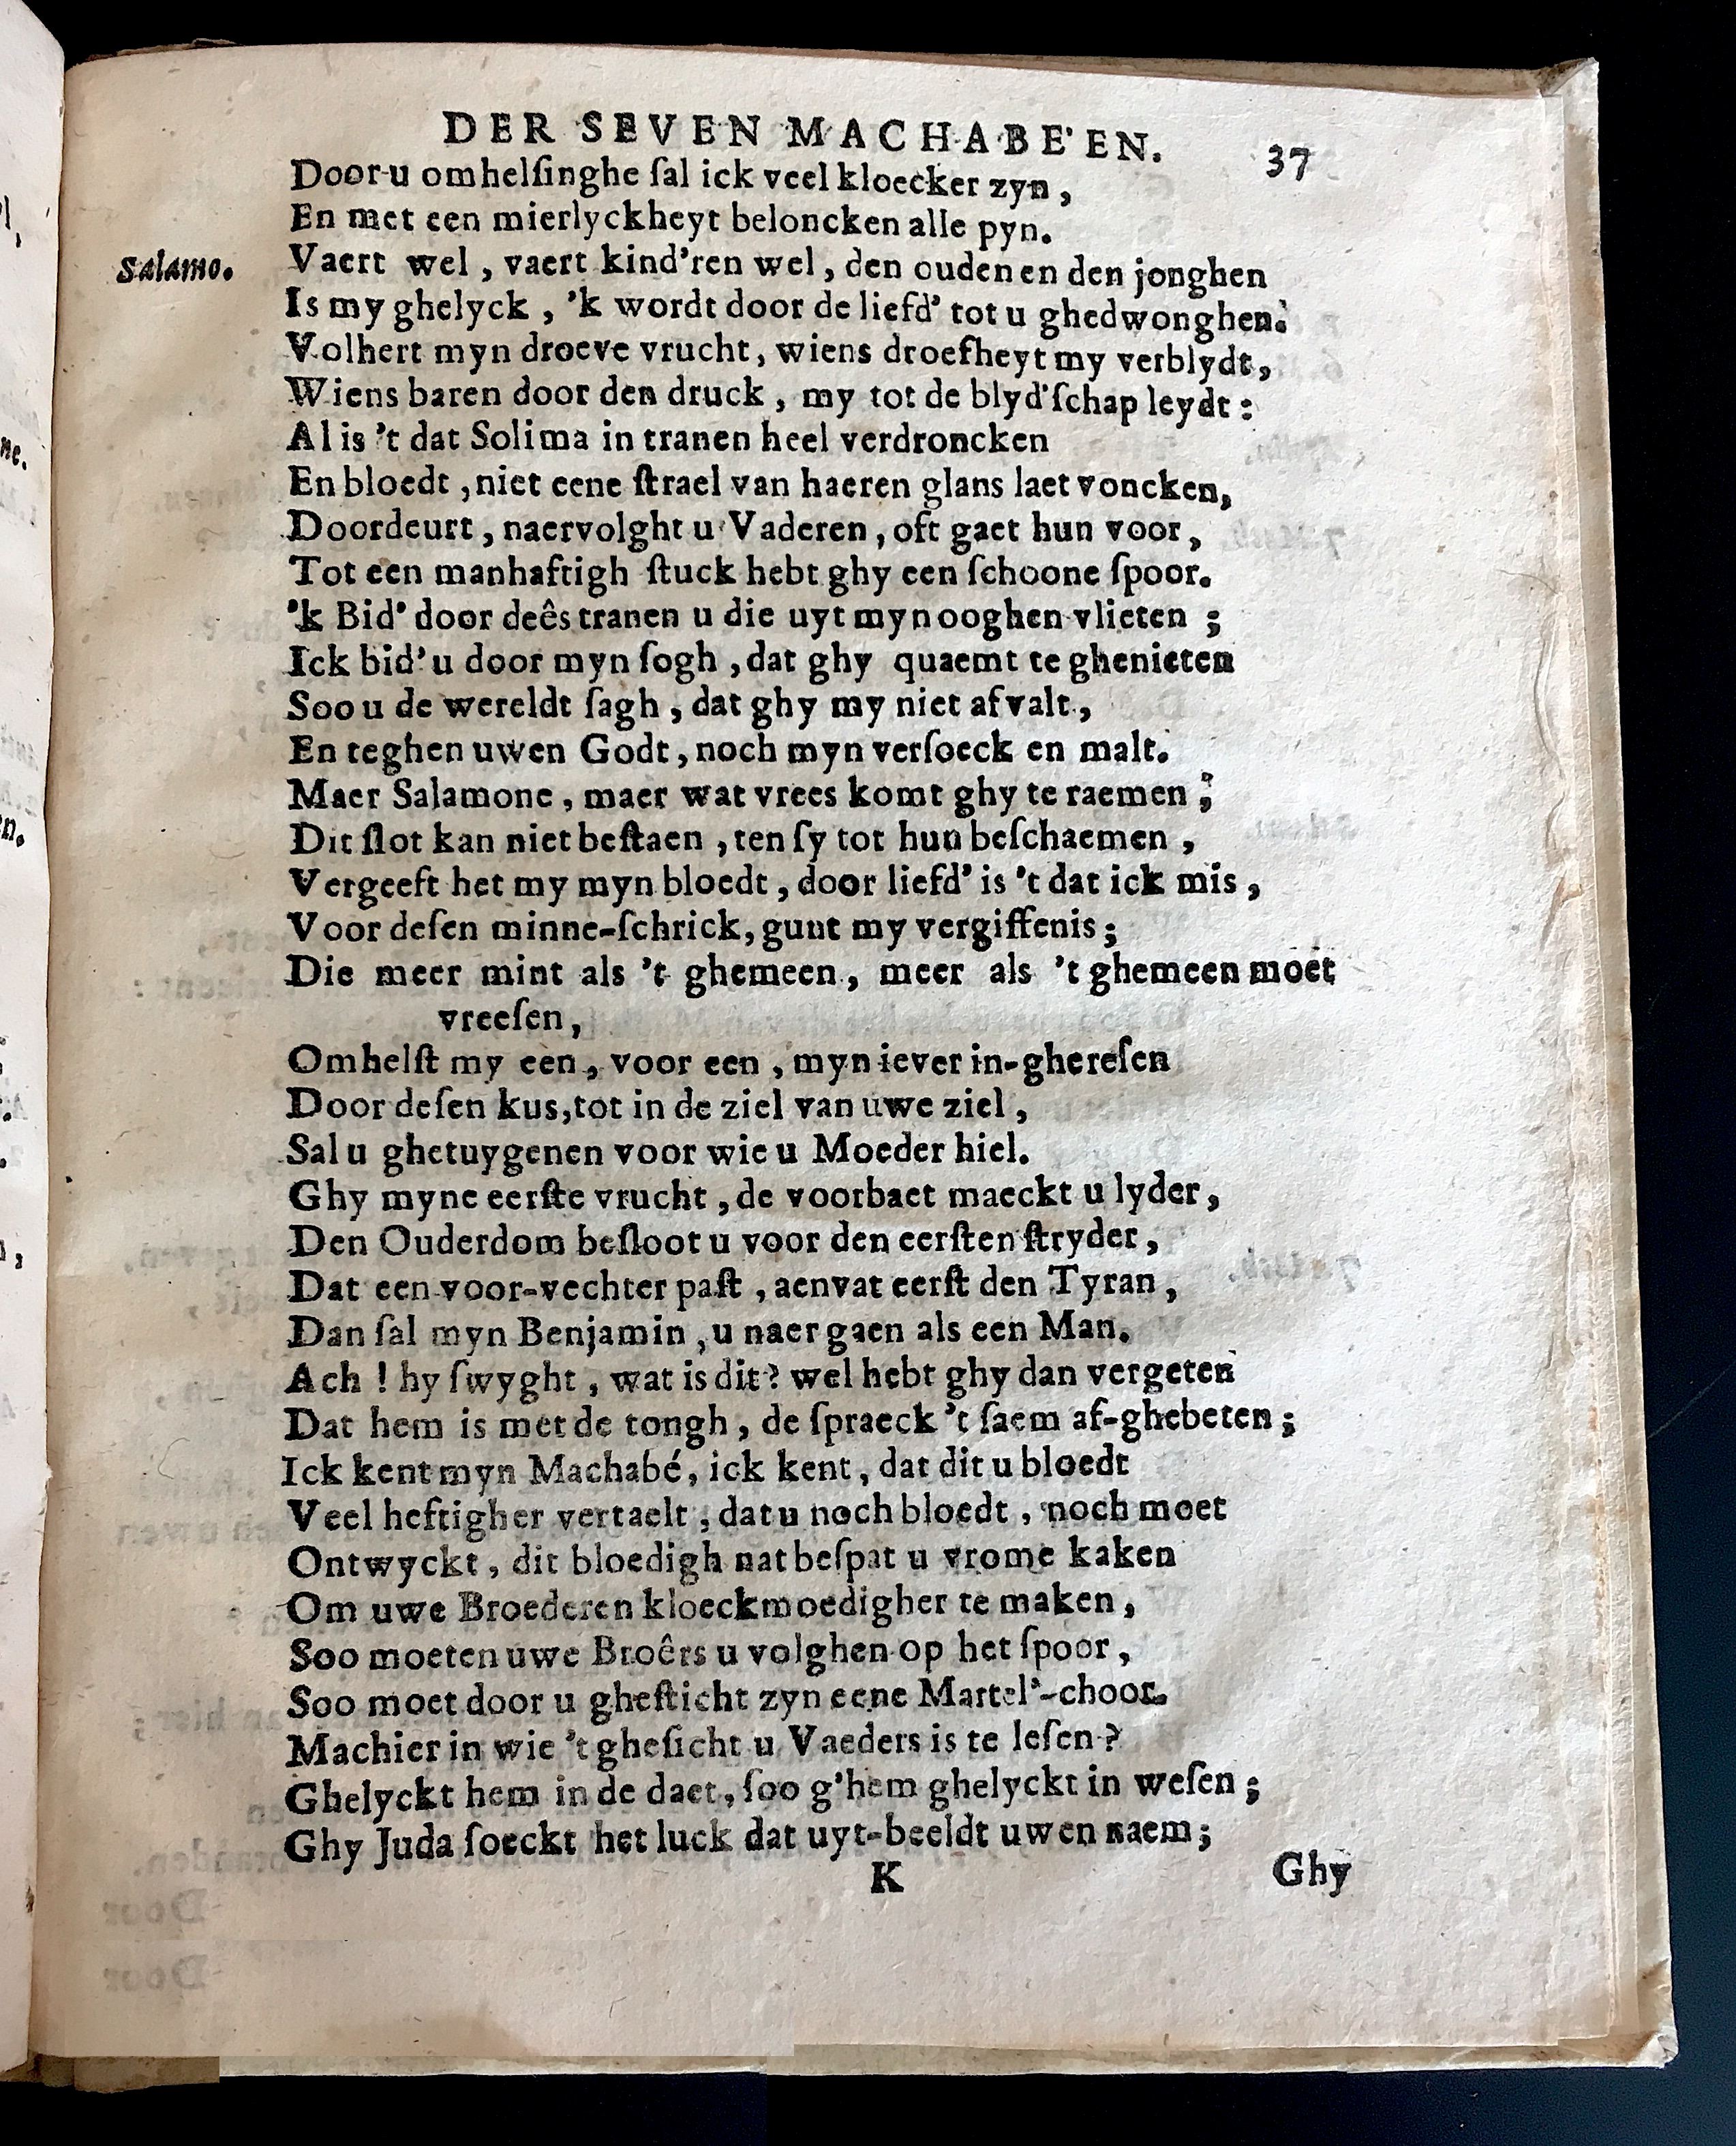 DER SEVEN MACHABE'EN. 37
Door u omhelſinghe ſal ick veel kloecker zyn,
En met een mierlyckheyt beloncken alle pyn.
Salamo. Vaert wel, vaert kind'ren wel, den ouden en den jonghen
Is my ghelyck, 'k wordt door de liefd' tot u ghedwonghen.
Volhert myn droeve vrucht, wiens droefheyt my verblydt,
Wiens baren door den druck, my tot de blyd'ſchap leydt:
Al is 't dat Solima in tranen heel verdroncken
En bloedt, niet eene ſtrael van haeren glans laet voncken,
Doordeurt, naervolght u Vaderen, oft gaet hun voor,
Tot een manhaftigh ſtuck hebt ghy een ſchoone ſpoor.
'k Bid' door deês tranen u die uyt myn ooghen vlieten;
Ick bid' u door myn ſogh, dat ghy quaemt te ghenieten
Soo u de wereldt ſagh, dat ghy my niet afvalt,
En teghen uwen Godt, noch myn verſoeck en malt.
Maer Salamone, maer wat vrees komt ghy te raemen;
Dit ſlot kan niet beſtaen, ten ſy tot hun beſchaemen,
Vergeeft het my myn bloedt, door liefd' is 't dat ick mis,
Voor deſen minne-ſchrick, gunt my vergiffenis;
Die meer mint als 't ghemeen, meer als 't ghemeen moet
vreeſen,
Omhelſt my een, voor een, myn iever in-ghereſen
Door deſen kus, tot in de ziel van uwe ziel,
Sal u ghetuygenen voor wie u Moeder hiel.
Ghy myne eerſte vrucht, de voorbaet maeckt u lyder,
Den Ouderdom beſloot u voor den eerſten ſtryder,
Dat een voor-vechter paſt, aenvat eerſt den Tyran,
Dan ſal myn Benjamin, u naer gaen als een Man.
Ach! hy ſwyght, wat is dit? wel hebt ghy dan vergeten
Dat hem is met de tongh, de ſpraeck 't ſaem af-ghebeten;
Ick kent myn Machabé, ick kent, dat dit u bloedt
Veel heftigher vertaelt, dat u noch bloedt, noch moet
Ontwyckt, dit bloedigh nat beſpat u vrome kaken
Om uwe Broederen kloeckmoedigher te maken,
Soo moeten uwe Broêrs u volghen op het ſpoor,
Soo moet door u gheſticht zyn eene Martel'-choor.
Machier in wie 't gheſicht u Vaeders is te leſen?
Ghelyckt hem in de daet, ſoo g'hem ghelyckt in weſen;
Ghy Juda ſoeckt het luck dat uyt-beeldt uwen naem;
K Ghy